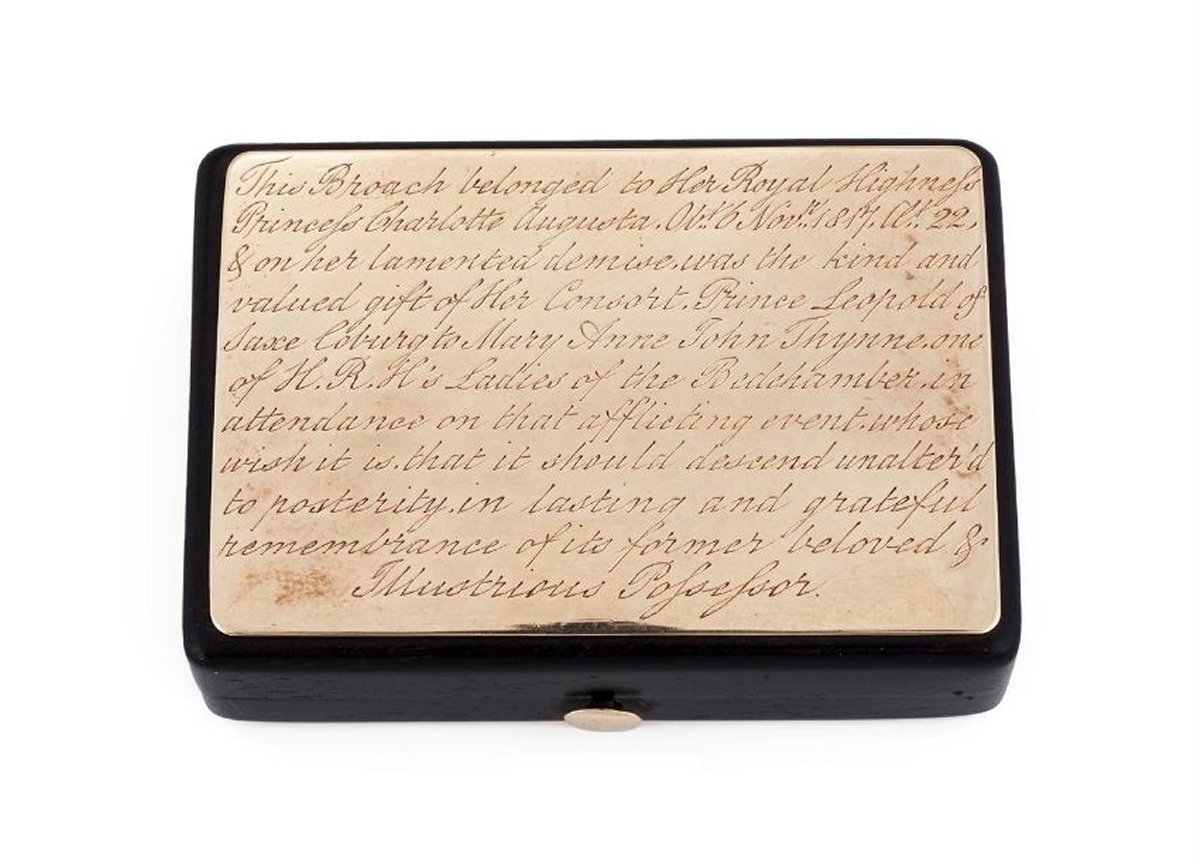 This Broach belonged to Her Royal Highneſs
Princeſs Charlotte Augusta. Obt. 6 Novr. 1817. Æt. 22,
& on her lamented demise, was the kind and
valued gift of Her Consort. Prince Leopold of
Saxe Coburg to Mary Anne John Thynne, one
of H.R.H's Ladies of the Bedchamber, in
attendance on that afflicting event, whose
wish it is, that it should descend unalter'd
to posterity, in lasting and grateful
remembrance of its former beloved &
Illustrious Poſseſsor.